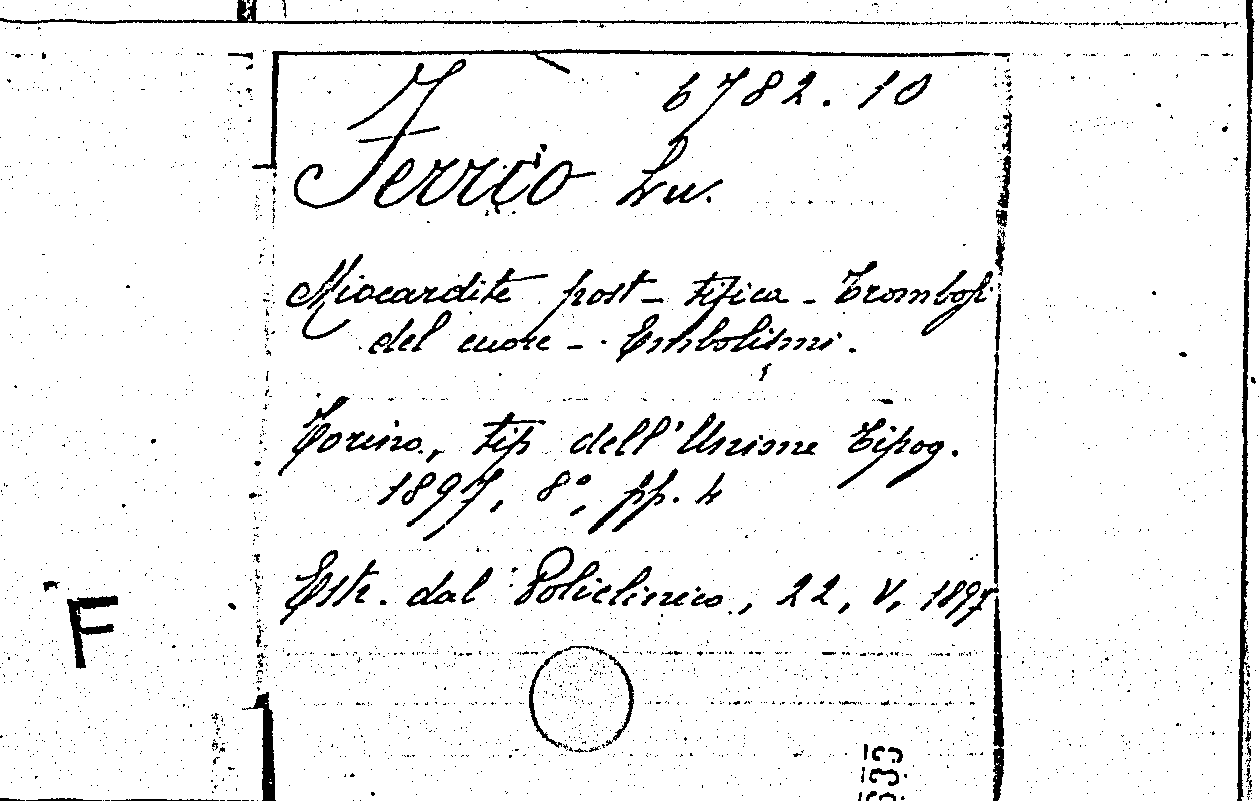 6782.10
Ferrio Lu.
Miocardite post-tifica - Trombosi
del cuore - Embolismi.
Torino, tip dell'Unione Tipog.
1897, 8°, pp. 4
Estr. dal Policlinico, 22, V, 1897
F